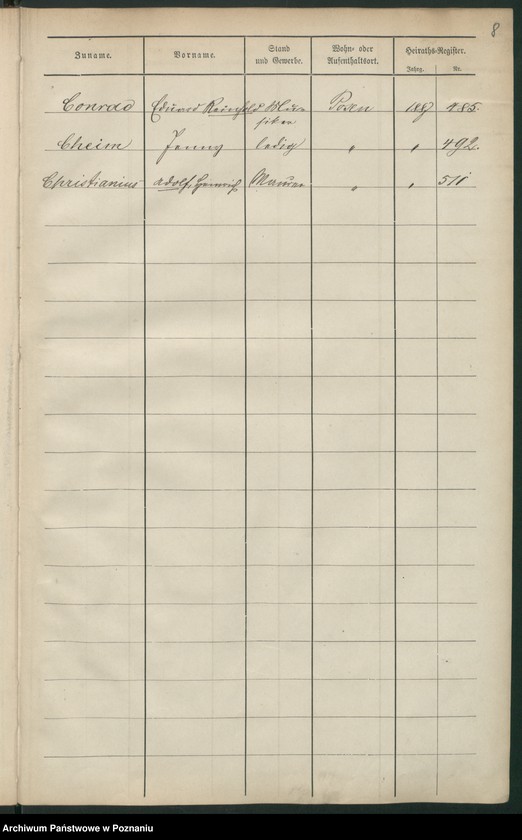 8
Zuname. Vorname. Stand und Gewerbe. Wohn- oder Aufenthaltsort. Heiraths-Register.
Jahrg. Nr.
Conrad Eduard Reinhold Musiker Posen 1889 485.
Cheim Jenny ledig " " 492.
Christianius Adolf Heinrich Maurer " " 511
Archiwum Państwowe w Poznaniu